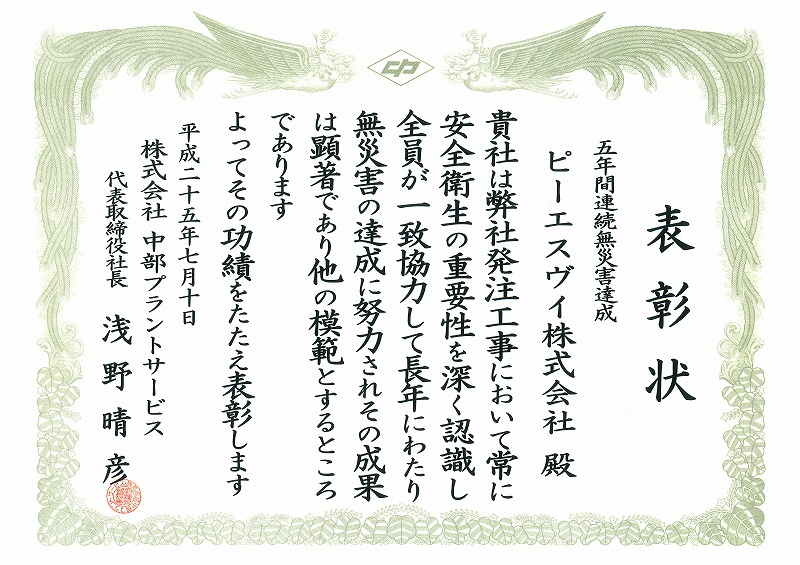 表彰状
五年間連続無災害達成
ピーエスヴィ株式会社 殿
貴社は弊社発注工事において常に
安全衛生の重要性を深く認識し
全員が一致協力して長年にわたり
無災害の達成に努力されその成果
は顕著であり他の模範とするところ
であります
よってその功績をたたえ表彰します
平成二十五年七月十日
株式会社 中部プラントサービス
代表取締役社長 浅野晴彦